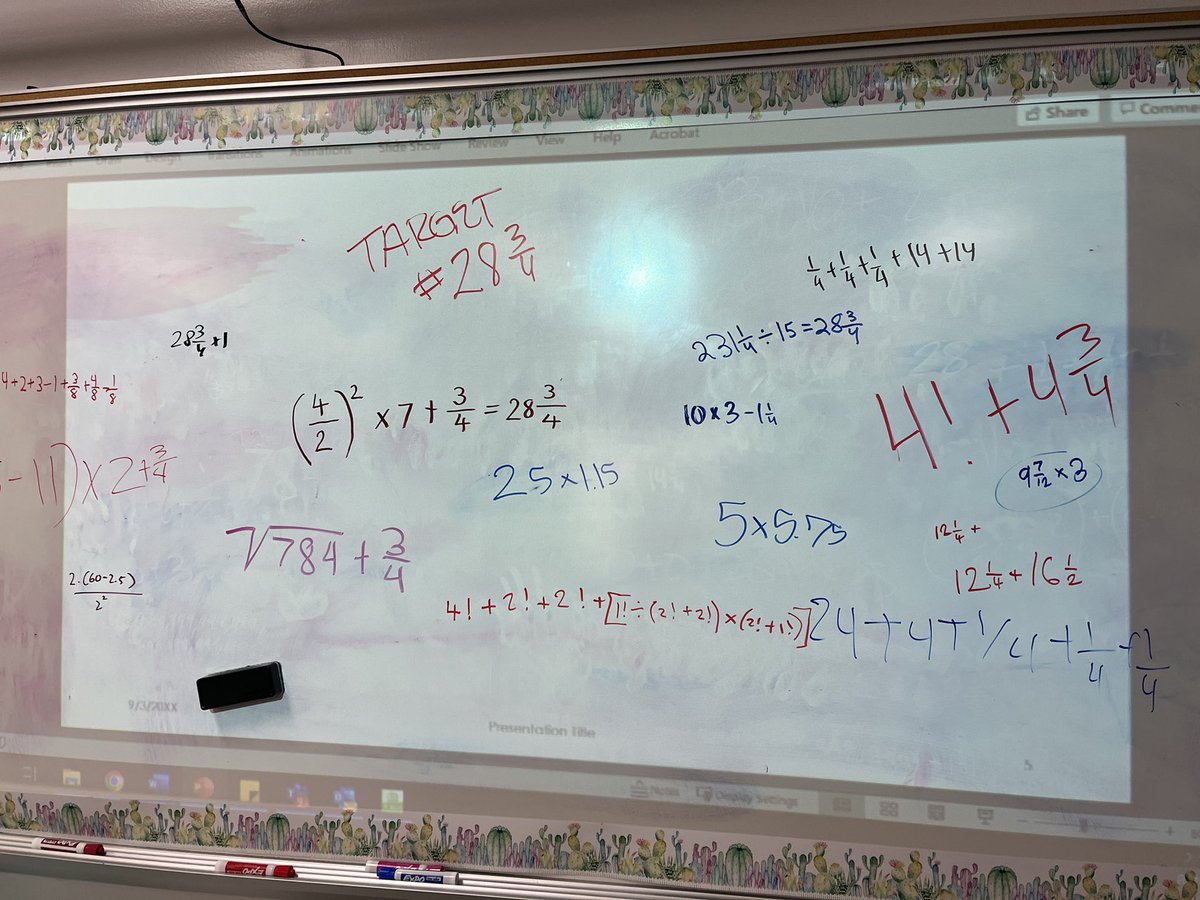 Share
Comma
Transitions
Animations
Slide Show
Review
View
Help
Acrobat
TARGET
#28 3/4
1/4+1/4+1/4+14+14
28 3/4 ×1
231 1/4÷15=28 3/4
4+2+3-1+3/8+4/8-1/8
(4/2)² × 7 + 3/4 = 28 3/4
10×3-1 1/4
4! + 4 3/4
-11)×2+3/4
25×1.15
9 7/12 ×3
√784 + 3/4
5×5.75
12 1/4 +
2·(60-2.5)/2²
12 1/4 + 16 1/2
4!+2!+2!+[1!÷(2!+2!)×(2!+1!)]
24+4+1/4+1/4+1/4
9/3/20XX
Presentation Title
5
Notes
Display Settings
EXPO